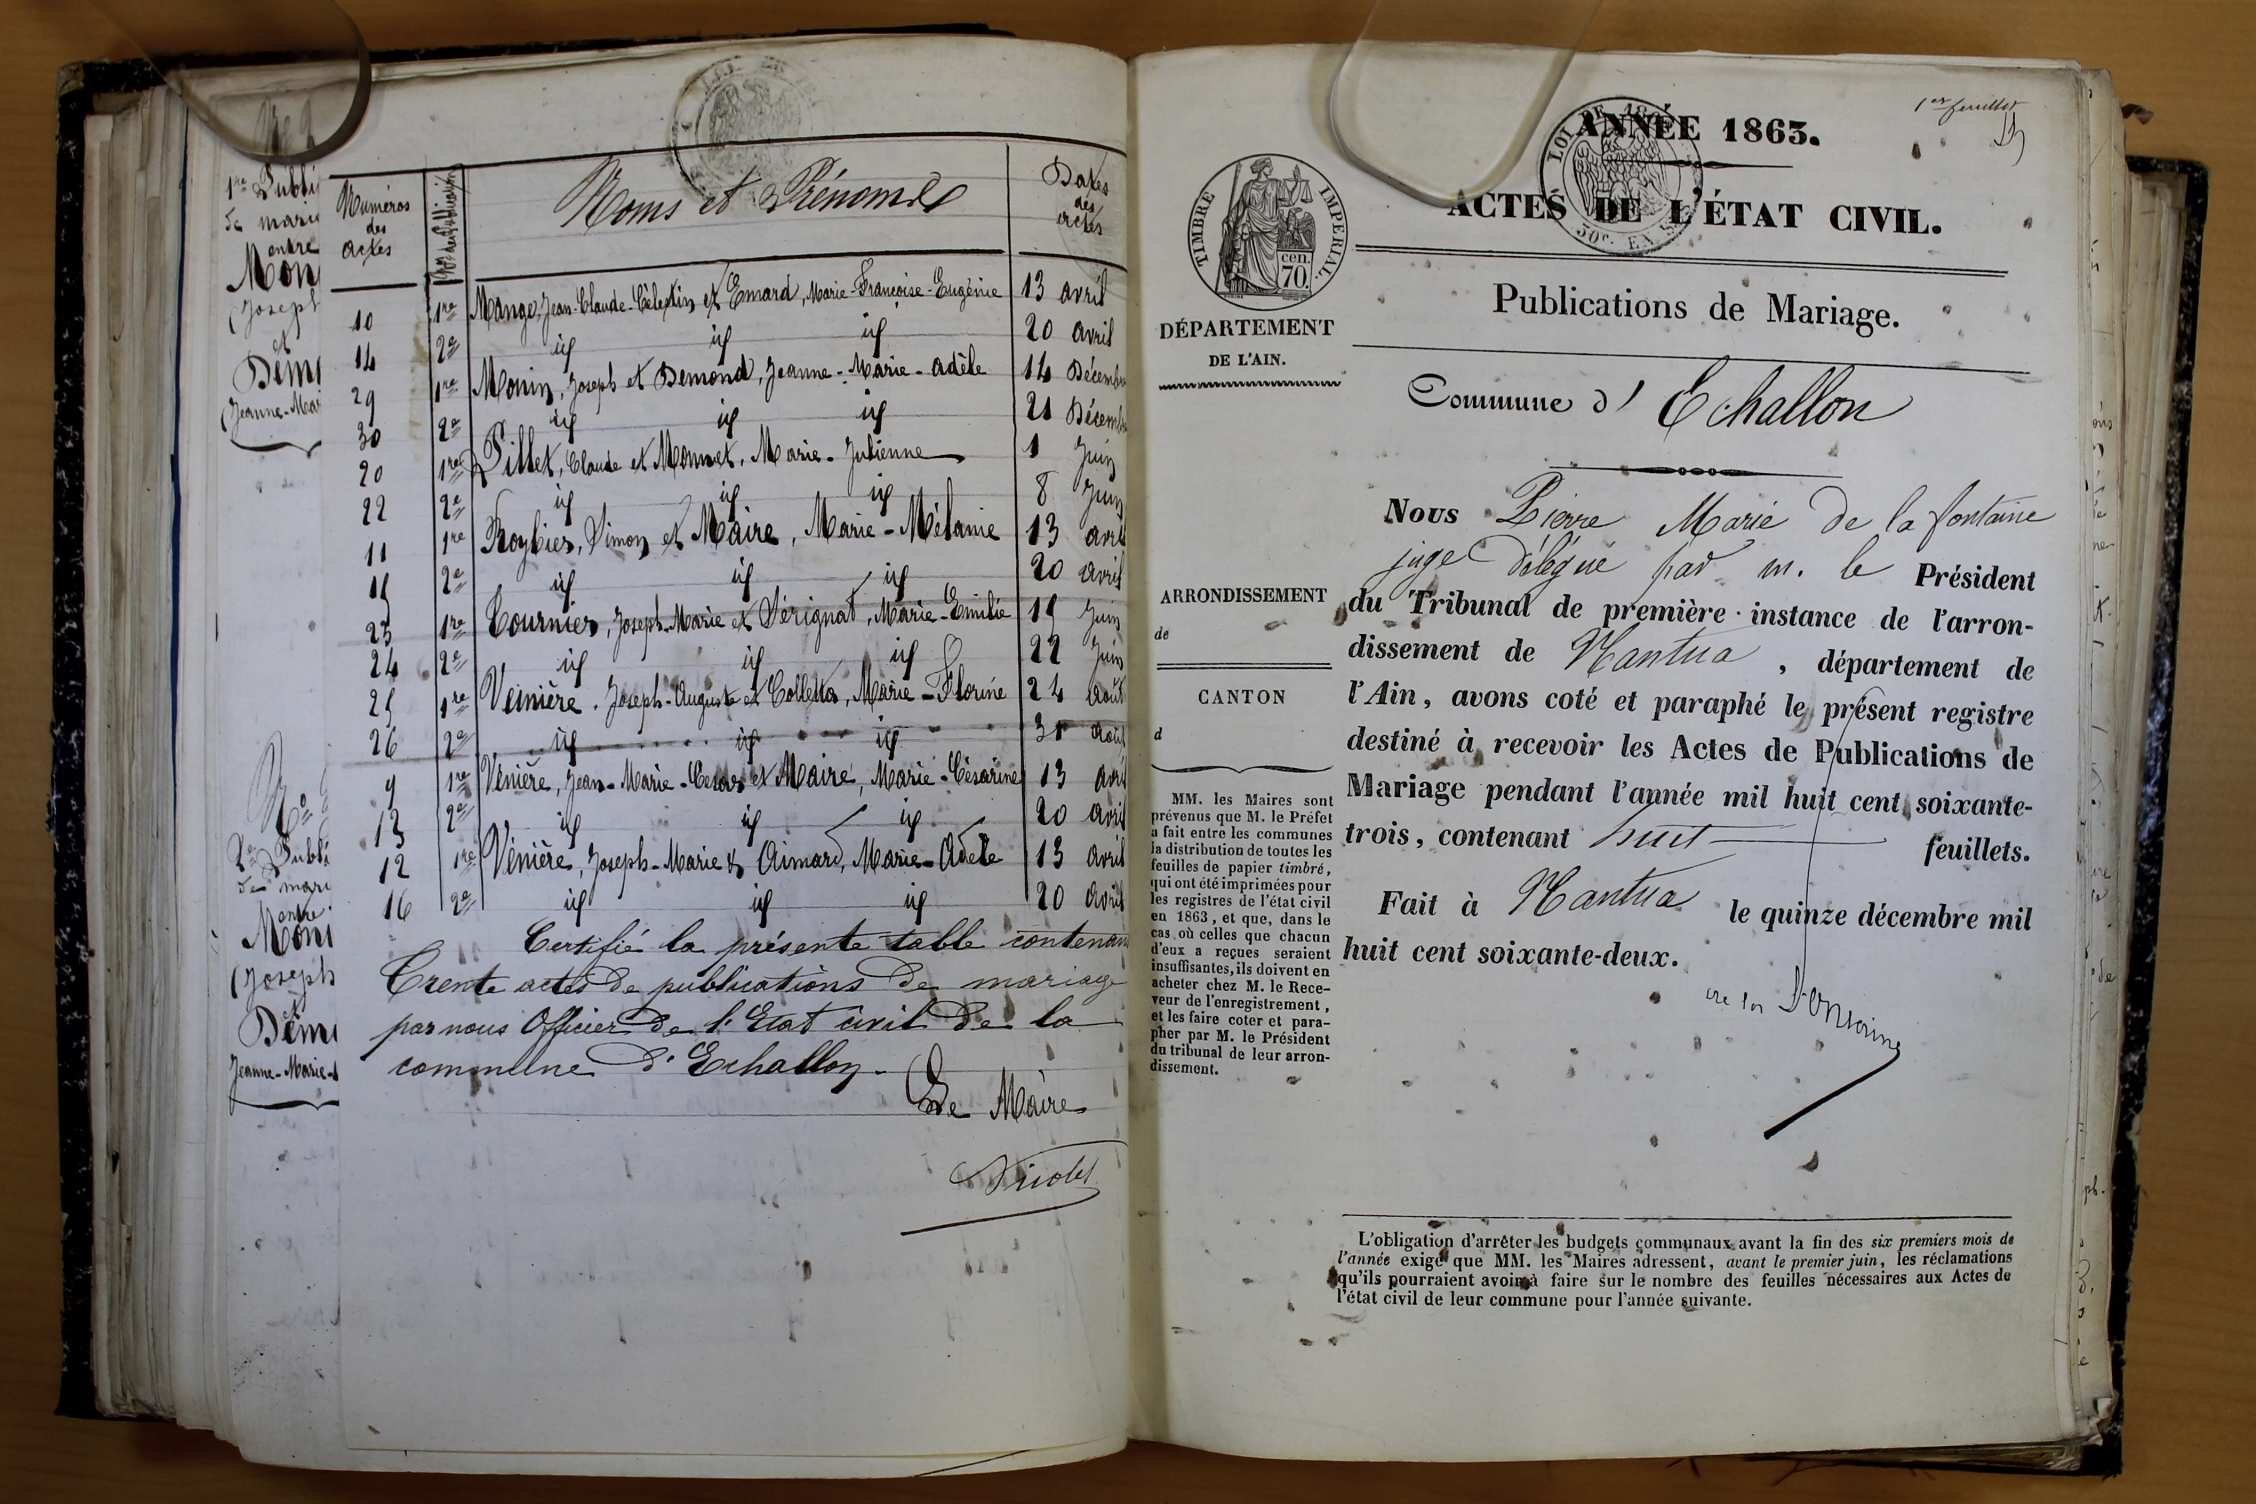 1re Publi
de mari
entre
Mon
(Joseph
et
Dém
(Jeanne-Mar
2e Publi
de mari
entre
Moni
(Joseph
et
Dém
Jeanne-Marie-
Numéros des actes
Nos des Publications
Noms et Prénoms
Dates des actes
10 1re Mange, Jean-Claude-Célestin et Emard, Marie-Françoise-Eugénie 13 avril
14 2e id id id 20 avril
29 1re Monin, Joseph et Demond, Jeanne-Marie-Adèle 14 Décembre
30 2e id id id 21 Décemb
20 1re Pillet, Claude et Monnet, Marie-Julienne 1 Juin
22 2e id id id 8 Juin
11 1re Roybier, Simon et Maire, Marie-Mélanie 13 avril
15 2e id id id 20 avril
23 1re Tournier, Joseph-Marie et Sérignat, Marie-Emilie 15 Juin
24 2e id id id 22 Juin
25 1re Veinière, Joseph-Auguste et Colletta, Marie-Florine 24 août
26 2e id id id 31 août
9 1re Vénière, Jean-Marie-César et Maire, Marie-Césarine 13 avri
13 2e id id id 20 avril
12 1re Vénière, Joseph-Marie & Aimard, Marie-Adèle 13 avril
16 2e id id id 20 avril
Certifié la présente table contenan
Trente actes de publications de mariage
par nous Officier de l'Etat civil de la
commune d'Echallon.
Le Maire
TIMBRE IMPERIAL.
cen.
70.
DÉPARTEMENT
DE L'AIN.
ARRONDISSEMENT
de
CANTON
d
MM. les Maires sont
prévenus que M. le Préfet
a fait entre les communes
la distribution de toutes les
feuilles de papier timbré,
qui ont été imprimées pour
les registres de l'état civil
en 1863, et que, dans le
cas où celles que chacun
d'eux a reçues seraient
insuffisantes, ils doivent en
acheter chez M. le Rece-
veur de l'enregistrement,
et les faire coter et para-
pher par M. le Président
du tribunal de leur arron-
dissement.
1er feuillet
ANNÉE 1863.
ACTES DE L'ÉTAT CIVIL.
Publications de Mariage.
Commune d' Echallon
Nous Pierre Marie de la fontaine
juge délégué par m. le Président
du Tribunal de première instance de l'arron-
dissement de Nantua, département de
l'Ain, avons coté et paraphé le présent registre
destiné à recevoir les Actes de Publications de
Mariage pendant l'année mil huit cent soixante-
trois, contenant huit feuillets.
Fait à Nantua le quinze décembre mil
huit cent soixante-deux.
L'obligation d'arrêter les budgets communaux avant la fin des six premiers mois de
l'année exige que MM. les Maires adressent, avant le premier juin, les réclamations
qu'ils pourraient avoir à faire sur le nombre des feuilles nécessaires aux Actes de
l'état civil de leur commune pour l'année suivante.